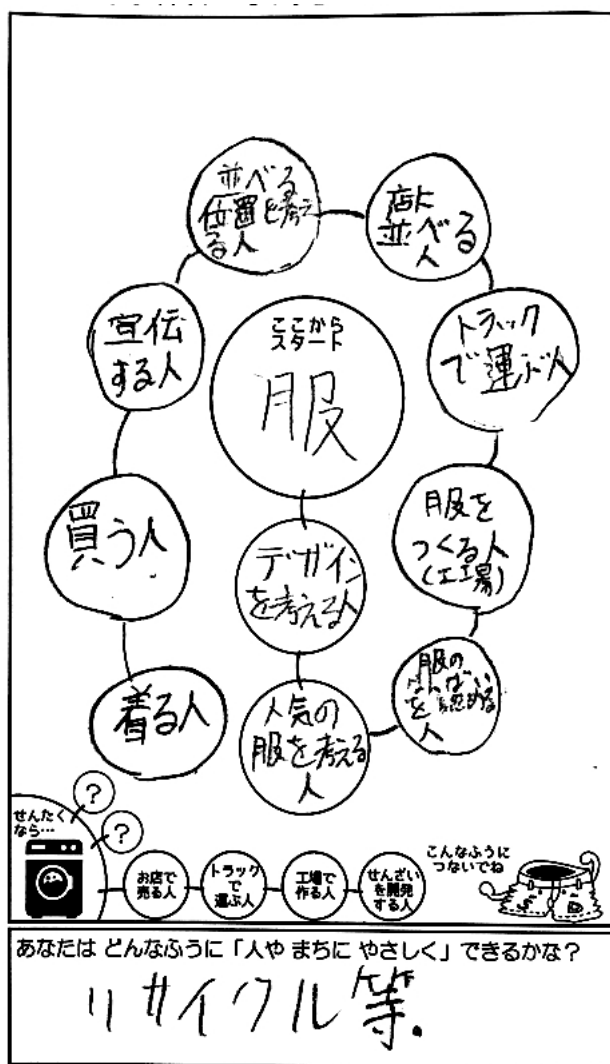 ここから
スタート
服
デザイン
を考える人
人気の
服を考える
人
服の
はんばい
を認める
人
服を
つくる人
(工場)
トラック
で運ぶ人
店に
並べる
人
並べる
位置を考え
る人
宣伝
する人
買う人
着る人
せんたく
なら…
?
?
お店で
売る人
トラック
で
運ぶ人
工場で
作る人
せんざい
を開発
する人
こんなふうに
つないでね
あなたは どんなふうに「人や まちに やさしく」できるかな?
リサイクル等.